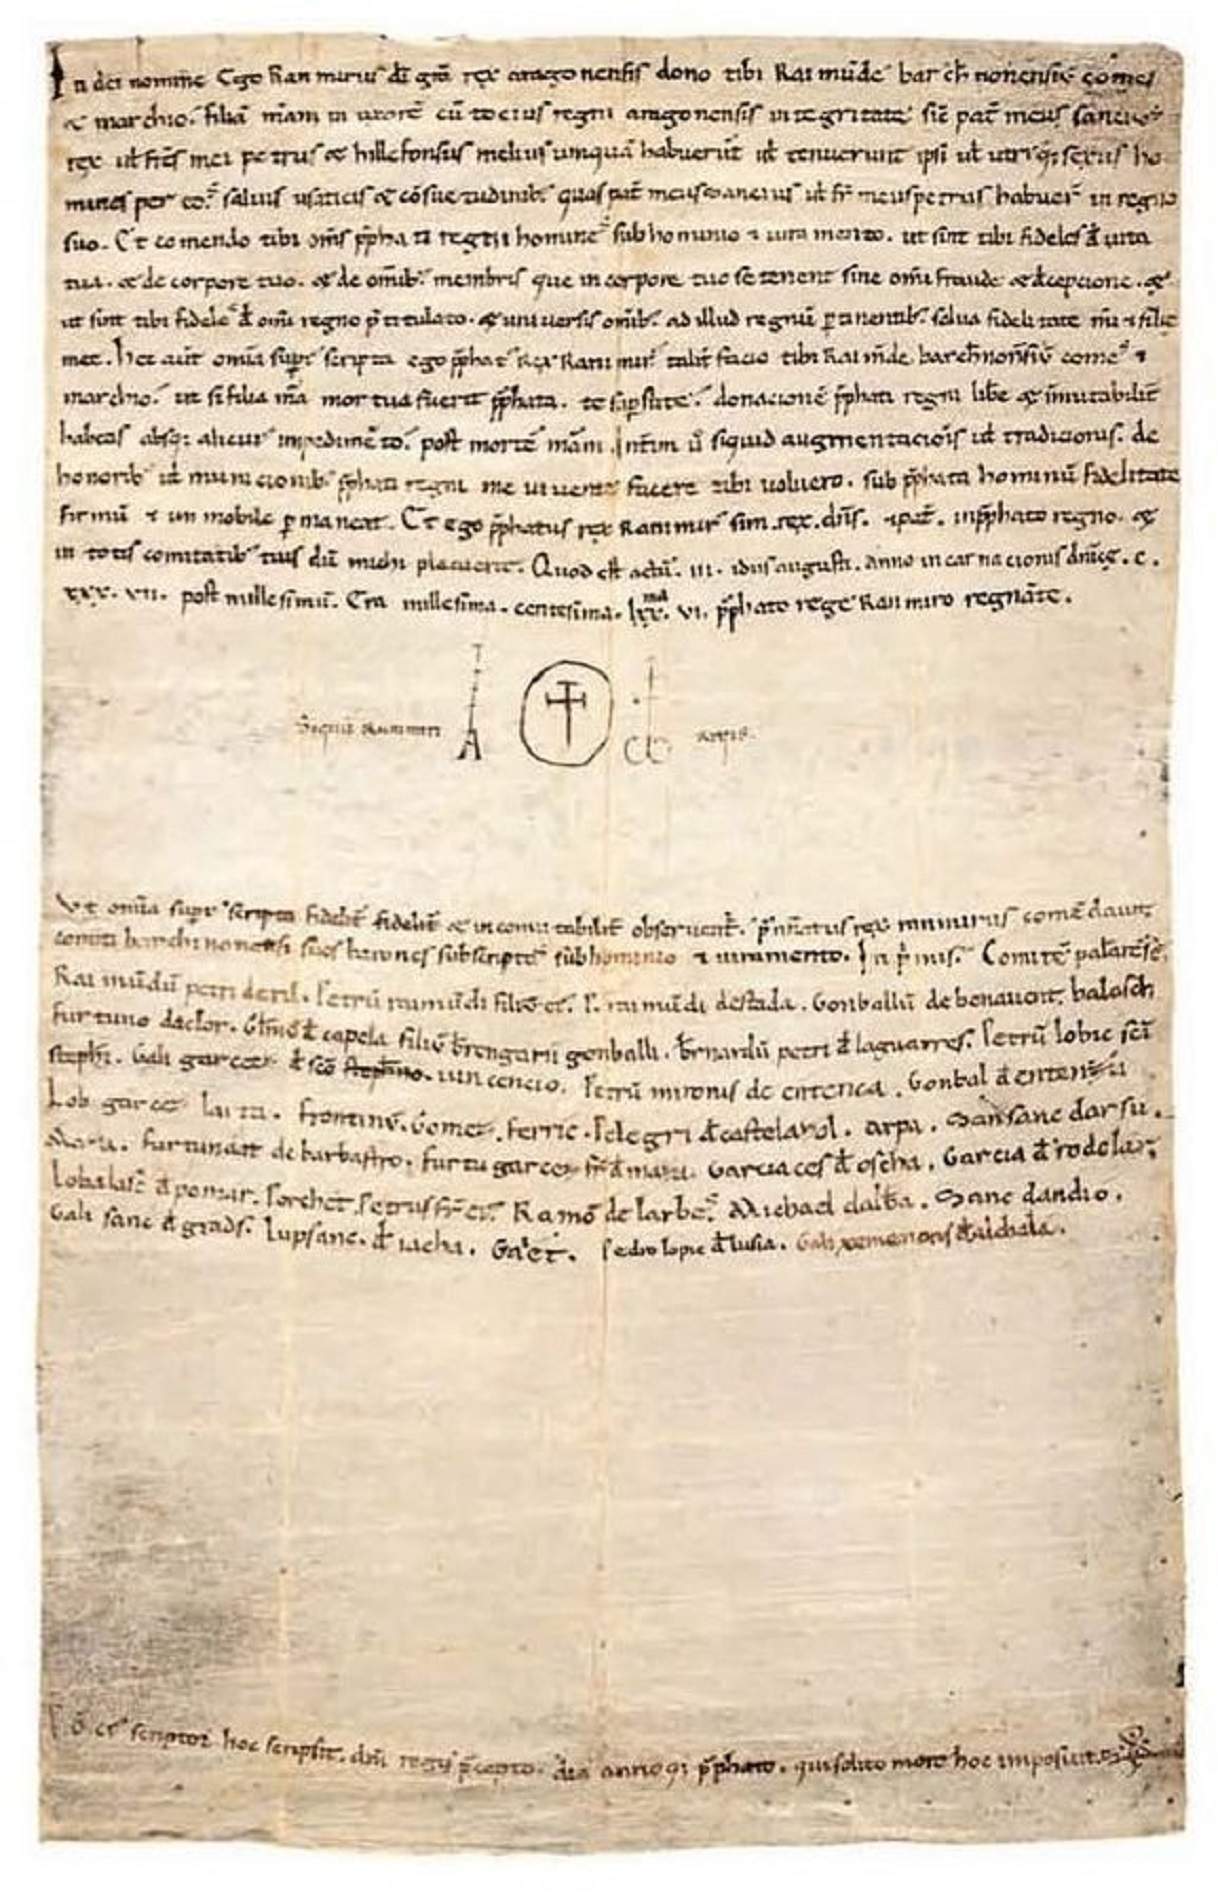 In dei nomine Ego Ranimirus dei gra rex aragonensis dono tibi Raimunde barchinonensiu comes
& marchio. filia mam in uxore cu tocius regni aragonensis integritate sic pat meus sancius
rex ut frs mei petrus & hillefonsus melius umqua habuerut ut tenuerunt ipsi ut utriq; sexus ho
mines per eo. saluis usaticis & cosuetudinib. quas pat meus sancius ut fr meus petrus habuer in regno
suo. Et comendo tibi oms pphati regni homines sub hominio & iuramento. ut sint tibi fideles d uita
tua. & de corpore tuo. & de omib. membris que in corpore tuo se tenent sine omi fraude & decepcione. &
ut sint tibi fideles d omi regno ptitulato. & uniuersis omib. ad illud regnu ptinentib. salua fidelitate mi & filie
mee. Hec aut omia supr scripta ego pphat Rex Ranimir talit facio tibi Raimude. barchinonsiu comes &
marchio. ut si filia ma mortua fuerit pphata. te supstite. donacione pphati regni libe & imutabilit
habeas absq; alicui impedimeto. post morte mam. Intim u siquid augmentaciois ut tradicionis. de
honorib ut municionib pphati regni me uiuente facere tibi uoluero. sub pphata hominu fidelitate
firmu & inmobile pmaneat. Et ego pphatus rex Ranimir sim. rex. dns. & pat. in pphato regno. &
in totis comitatib tuis du michi placuerit. Quod est actu. iii. idus augusti. anno incarnacionis dnice. c.
xxx. vii. post millesimu. Era millesima. centesima. lxx.ma vi. pphato rege Ranimiro regnate.
Signu Ranimiri regis.
Ut omia supr scripta fidelit fidelit & incomutabilit obseruent. pnnatus rex ranimirus comedauit
comiti barchinonensi suos barones subscriptos sub hominio & iuramento. In pmis. Comite palarese.
Raimudu petri deril. Petru raimudi filiu ei. P. raimudi destada. Gonballu de benauent. balasch
furtuno daclor. Glmo d capela filiu brengarii gonballi. brnardu petri d laguarres. Petru lobic sci
stephi. Gali garcez d sco stephano. uincencio. Petru mironis de entenca. Gonbal d entenza
Lob garcez. frontinu. Gomez. ferric. Pelegri d castelazol. arpa. Sansanc darsu.
Maza. furtunat de barbastro. furtu garcez fr d maza. Garcia ces d oscha. Garcia d rodelar;
Lobalasc d pomar. Porchet. Petrus fr ei. Ramo de larbes. Michael dalba. Sanc dandio.
Gali sanc d grads. Lupsanc. d iacha. Ga et. Pedro lopic d lusia. Gali xemenonis d alchala.
scriptor hoc scripsit. dni regis pcepto. dia annoq; pphato. qui solito more hoc imposuit.